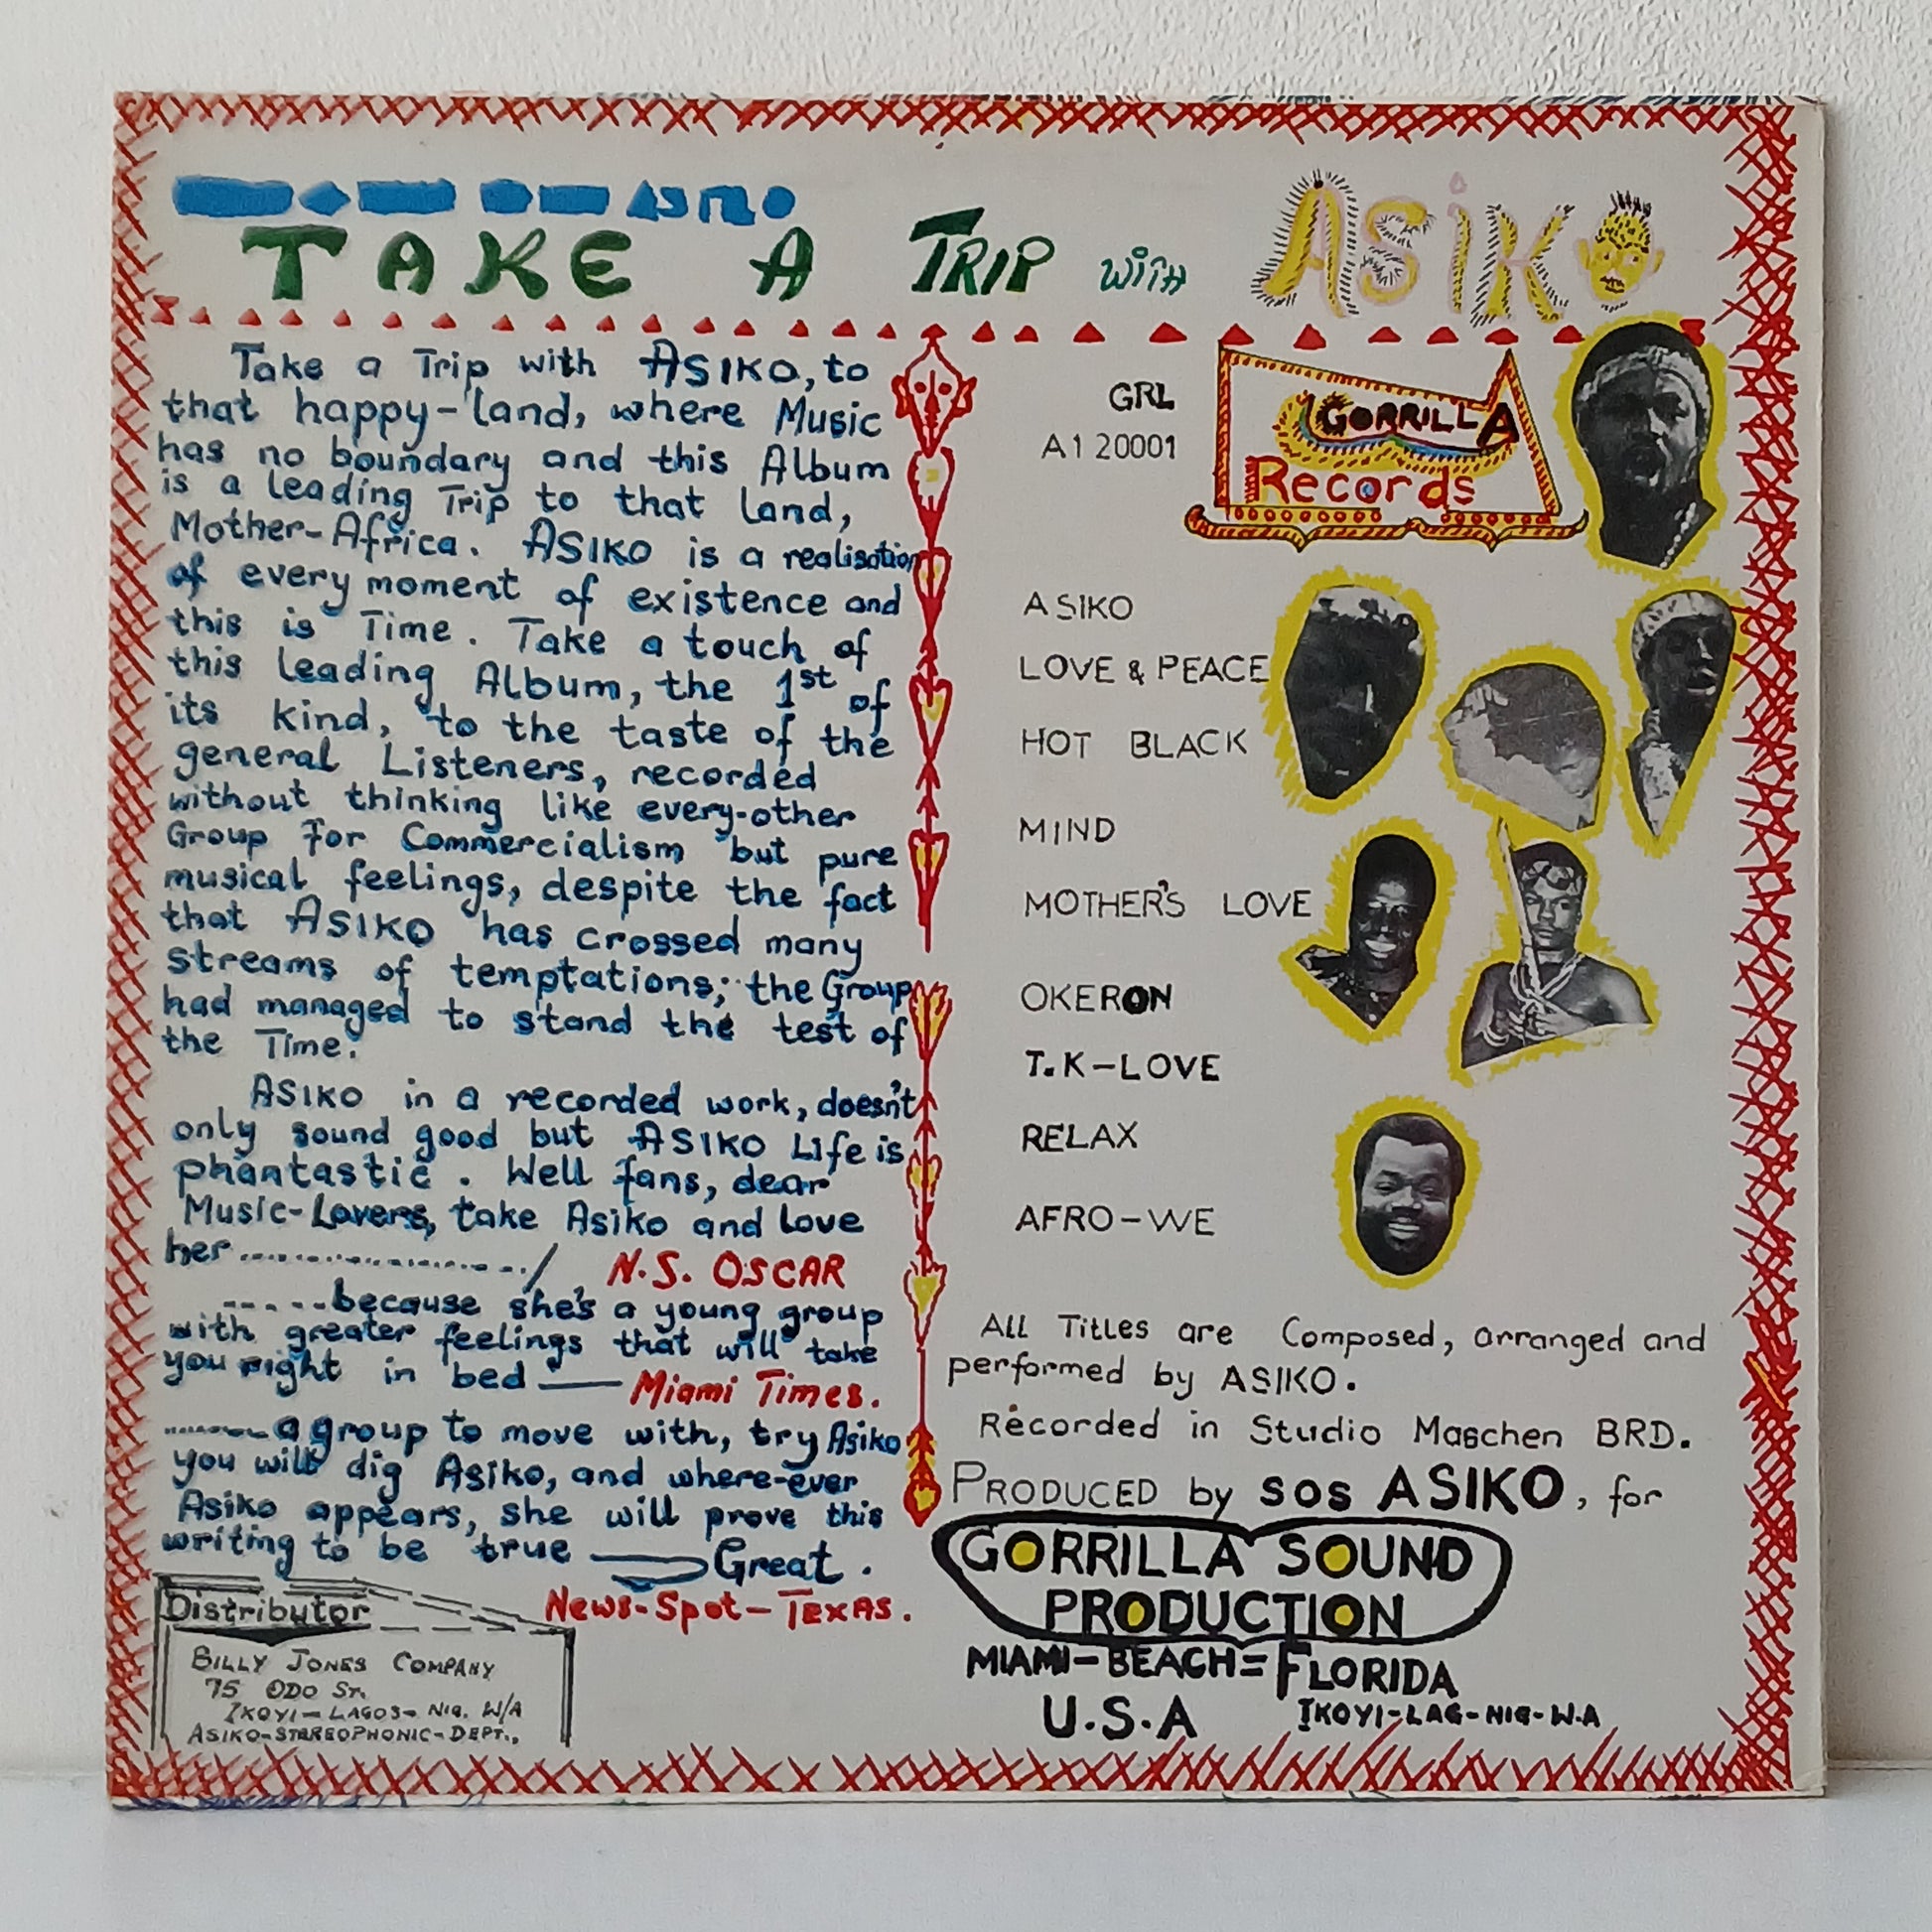 TAKE A TRIP with ASIKO
Take a Trip with ASIKO, to
that happy-land, where Music
has no boundary and this Album
is a leading Trip to that land,
Mother-Africa. ASIKO is a realisation
of every moment of existence and
this is Time. Take a touch of
this leading Album, the 1st of
its kind, to the taste of the
general Listeners, recorded
without thinking like every-other
Group for Commercialism but pure
musical feelings, despite the fact
that ASIKO has crossed many
streams of temptations; the Group
had managed to stand the test of
the Time.
ASIKO in a recorded work, doesn't
only sound good but ASIKO Life is
phantastic. Well fans, dear
Music-Lovers, take Asiko and love
her ................/ N.S. OSCAR
.....because she's a young group
with greater feelings that will take
you right in bed — Miami Times.
........a group to move with, try Asiko
you will dig Asiko, and where-ever
Asiko appears, she will prove this
writing to be true — Great.
News-Spot-TEXAS.
Distributor
BILLY JONES COMPANY
75 ODO ST.
IKOYI-LAGOS-NIG. W/A
ASIKO-STEREOPHONIC-DEPT.,
GRL
A1 20001
GORRILLA
Records
ASIKO
LOVE & PEACE
HOT BLACK
MIND
MOTHER'S LOVE
OKERON
T.K-LOVE
RELAX
AFRO-WE
All Titles are Composed, arranged and
performed by ASIKO.
Recorded in Studio Maschen BRD.
PRODUCED by SOS ASIKO, for
GORRILLA SOUND
PRODUCTION
MIAMI-BEACH=FLORIDA
U.S.A IKOYI-LAG-NIG-W.A